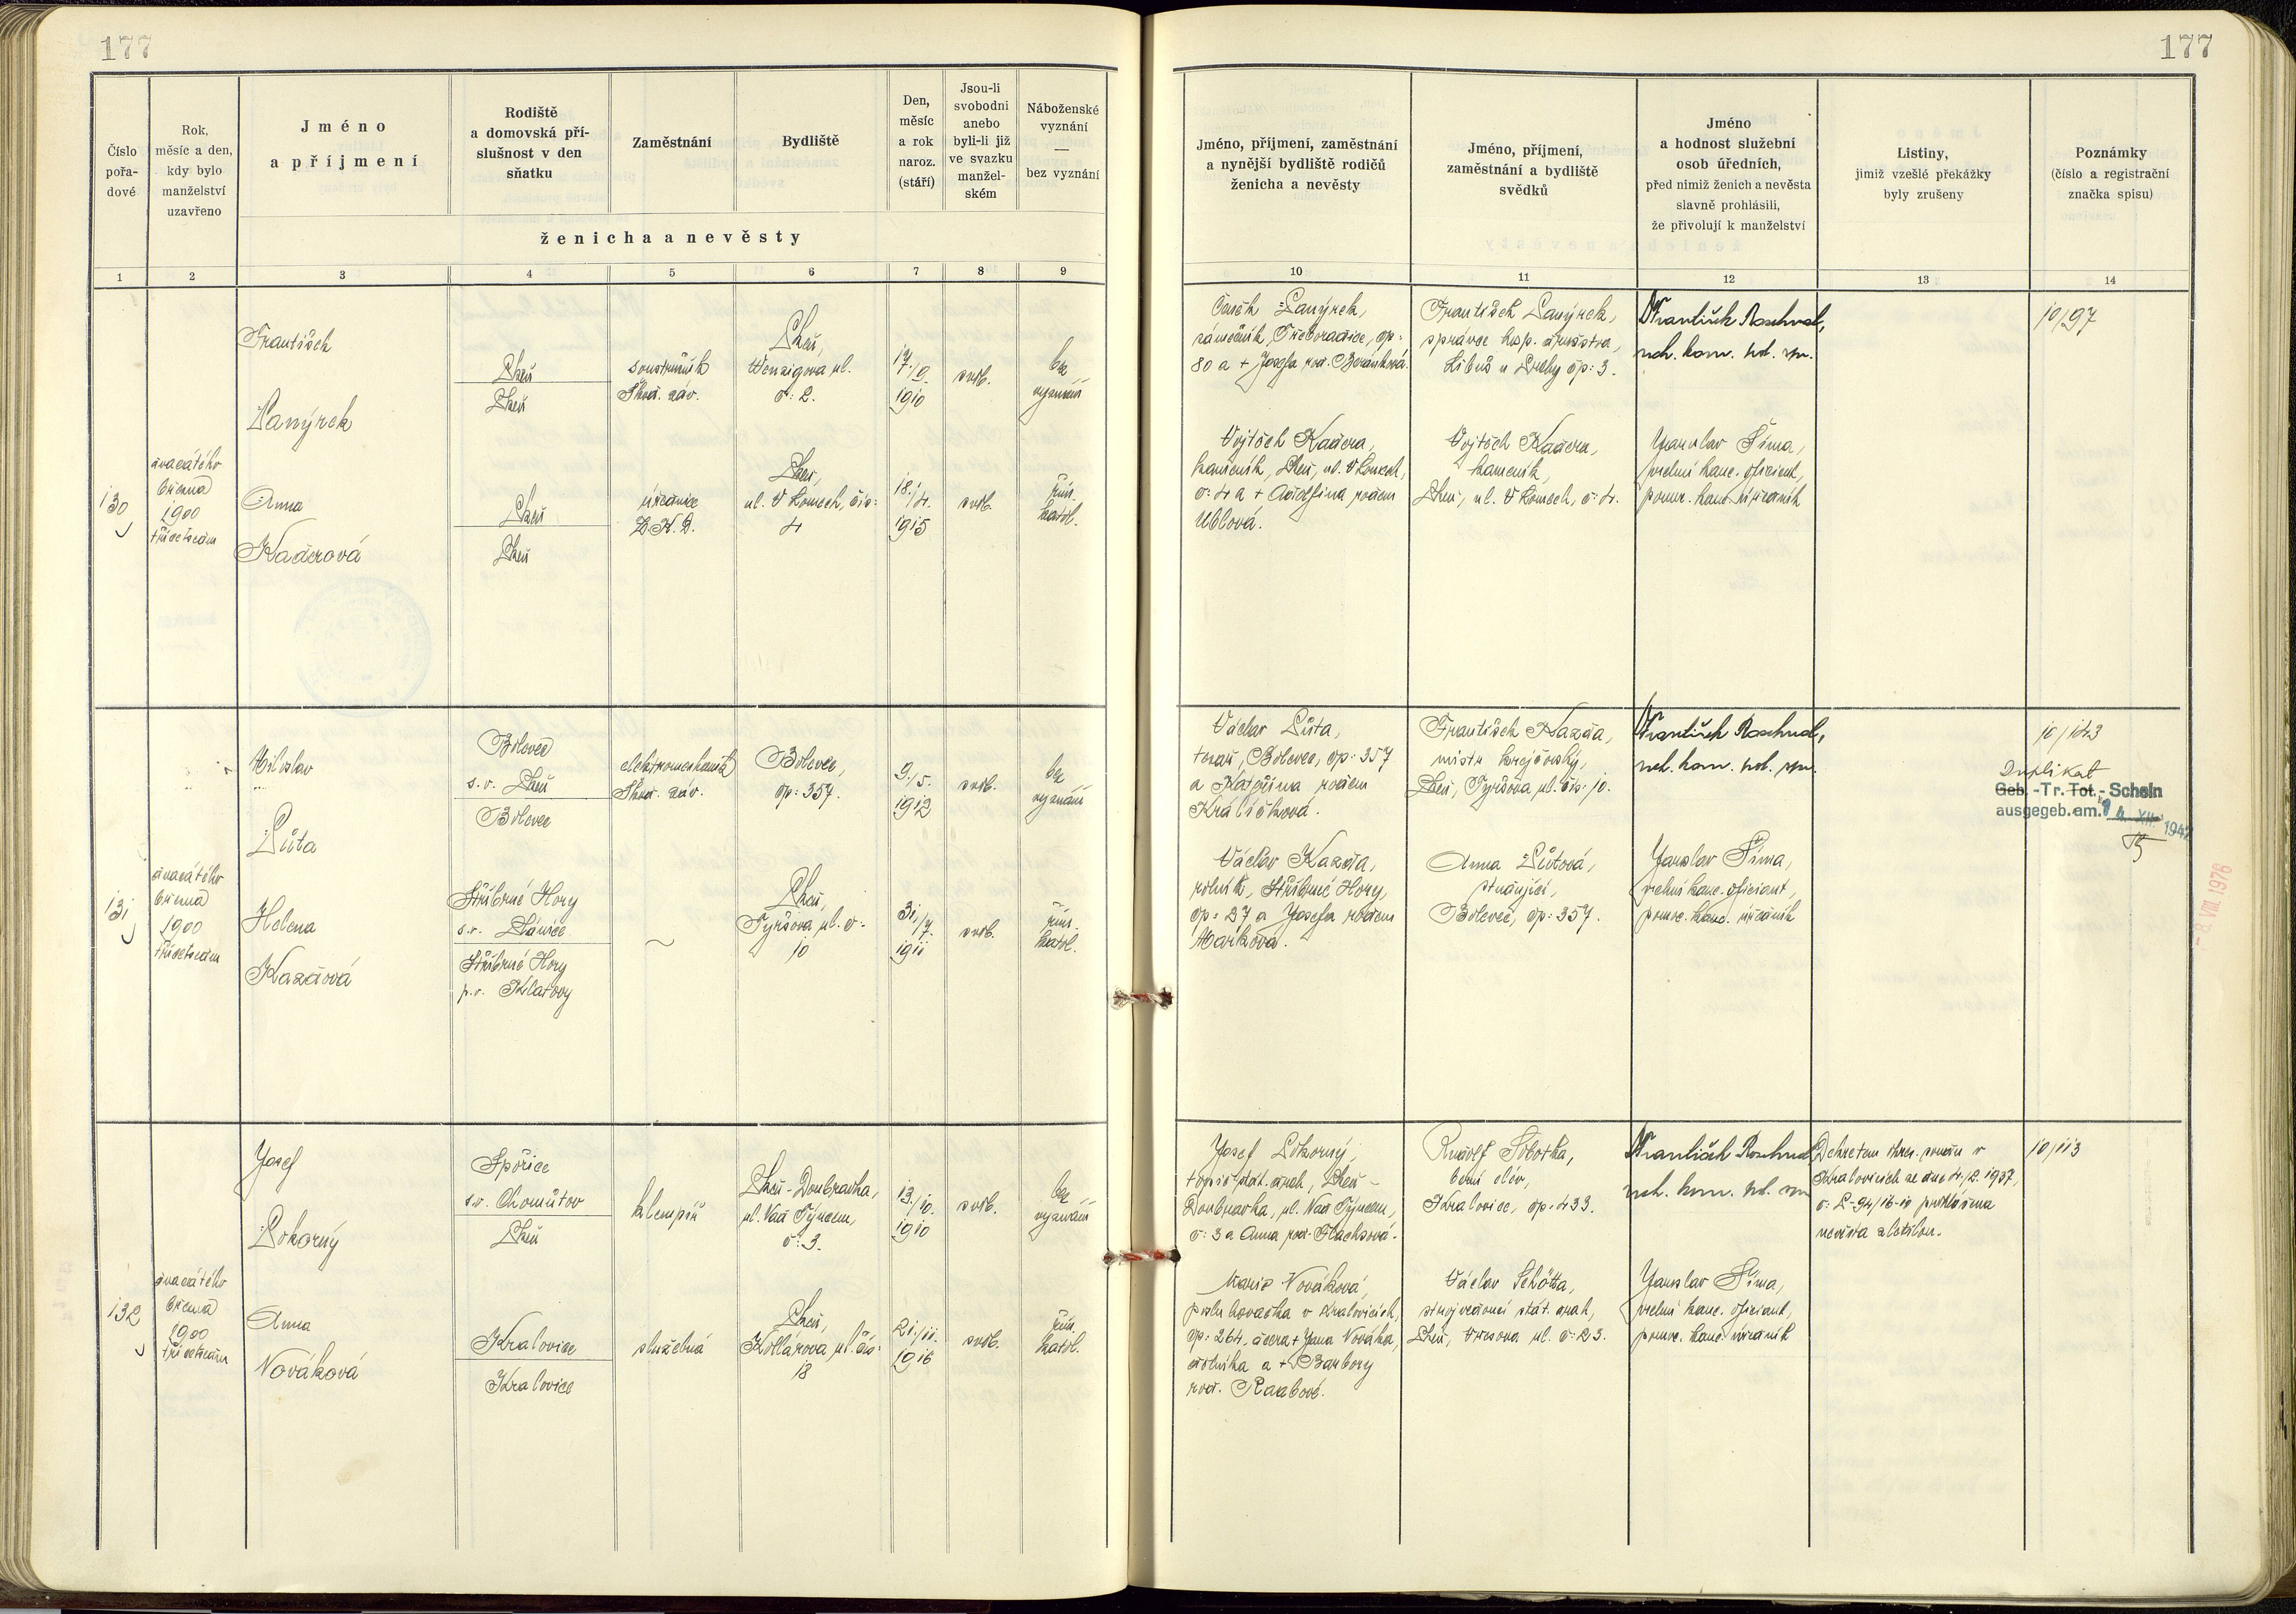 177
177
Číslo
pořa-
dové
Rok,
měsíc a den,
kdy bylo
manželství
uzavřeno
Jméno
a příjmení
Rodiště
a domovská pří-
slušnost v den
sňatku
Zaměstnání
Bydliště
Den,
měsíc
a rok
naroz.
(stáří)
Jsou-li
svobodni
anebo
byli-li již
ve svazku
manžel-
ském
Náboženské
vyznání
—
bez vyznání
ženicha a nevěsty
1 2 3 4 5 6 7 8 9
Jméno, příjmení, zaměstnání
a nynější bydliště rodičů
ženicha a nevěsty
Jméno, příjmení,
zaměstnání a bydliště
svědků
Jméno
a hodnost služební
osob úředních,
před nimiž ženich a nevěsta
slavně prohlásili,
že přivolují k manželství
Listiny,
jimiž vzešlé překážky
byly zrušeny
Poznámky
(číslo a registrační
značka spisu)
10 11 12 13 14
130
dvacátého
března
1900
třicetsedm
František
Panýrek
Plzeň
Plzeň
soustružník
Škod. záv.
Plzeň,
Wenzigova ul.
č: 2.
17./9.
1910
svob.
bez
vyznání
Anna
Kaderová
Plzeň
Plzeň
úřednice
Plzeň,
ul. V Lomech, čís:
4
18./4.
1915
svob.
řím.
katol.
Čeněk Panýrek,
zámečník, Třeboradice, čp:
80 a + Josefa roz. Beránková.
Vojtěch Kadera,
kameník, Plzeň, ul. V Lomech,
č: 4 a + Adolfina rodem
Ublová.
František Panýrek,
správce hosp. družstva,
Libuš u Prahy čp: 3.
Vojtěch Kadera,
kameník,
Plzeň, ul. V Lomech, č: 4.
František
Jaroslav Šíma,
vrchní kanc. oficiant,
pomoc. kanc. úředník
10/97
131
dvacátého
března
1900
třicetsedm
Miloslav
Lůta
Bolevec
s.o. Plzeň
Bolevec
elektromechanik
Škod. záv.
Bolevec,
čp: 357.
9./5.
1912
svob.
bez
vyznání
Helena
Kazdová
Stříbrné Hory
s.o. Plánice
Stříbrné Hory
p.o. Klatovy
~
Plzeň,
Tyršova ul. č:
10
31./7.
1911
svob.
řím.
katol.
Václav Lůta,
tesař, Bolevec, čp: 357
a Kateřina rodem
Králíčková.
Václav Kazda,
rolník, Stříbrné Hory,
čp: 27 a Josefa rodem
Marková.
František Kazda,
mistr krejčovský,
Plzeň, Tyršova ul. čís: 10.
Anna Lůtová,
studující,
Bolevec, čp: 357.
František
Jaroslav Šíma,
vrchní kanc. oficiant,
pomoc. kanc. úředník
10/143
Duplikat
Geb.-Tr. Tot.-Schein
ausgegeb. am. XII. 1942
- 8. VIII. 1976
132
dvacátého
března
1900
třicetsedm
Josef
Pokorný
Spořice
s.o. Chomutov
Plzeň
klempíř
Plzeň-Doubravka,
ul. Nad Týncem,
č: 3.
13./10.
1910
svob.
bez
vyznání
Anna
Nováková
Kralovice
Kralovice
služebná
Plzeň,
Kollárova ul. čís:
18
21./11.
1916
svob.
řím.
katol.
Josef Pokorný,
topič stát. drah, Plzeň-
Doubravka, ul. Nad Týncem,
č: 3 a Anna roz. Flachsová.
Marie Nováková,
posluhovačka v Kralovicích,
čp: 264, dcera + Jana Nováka,
dělníka a + Barbory
roz. Raabové.
Rudolf Sobotka,
Kralovice, čp: 433.
Václav Schötta,
strojvedoucí stát. drah,
Plzeň, ul. č: 23.
František
Jaroslav Šíma,
vrchní kanc. oficiant,
pomoc. kanc. úředník
Dekretem okres. soudu v
Kralovicích ze dne 4./2. 1937,
č: P-94/16-10 prohlášena
nevěsta zletilou.
10/113